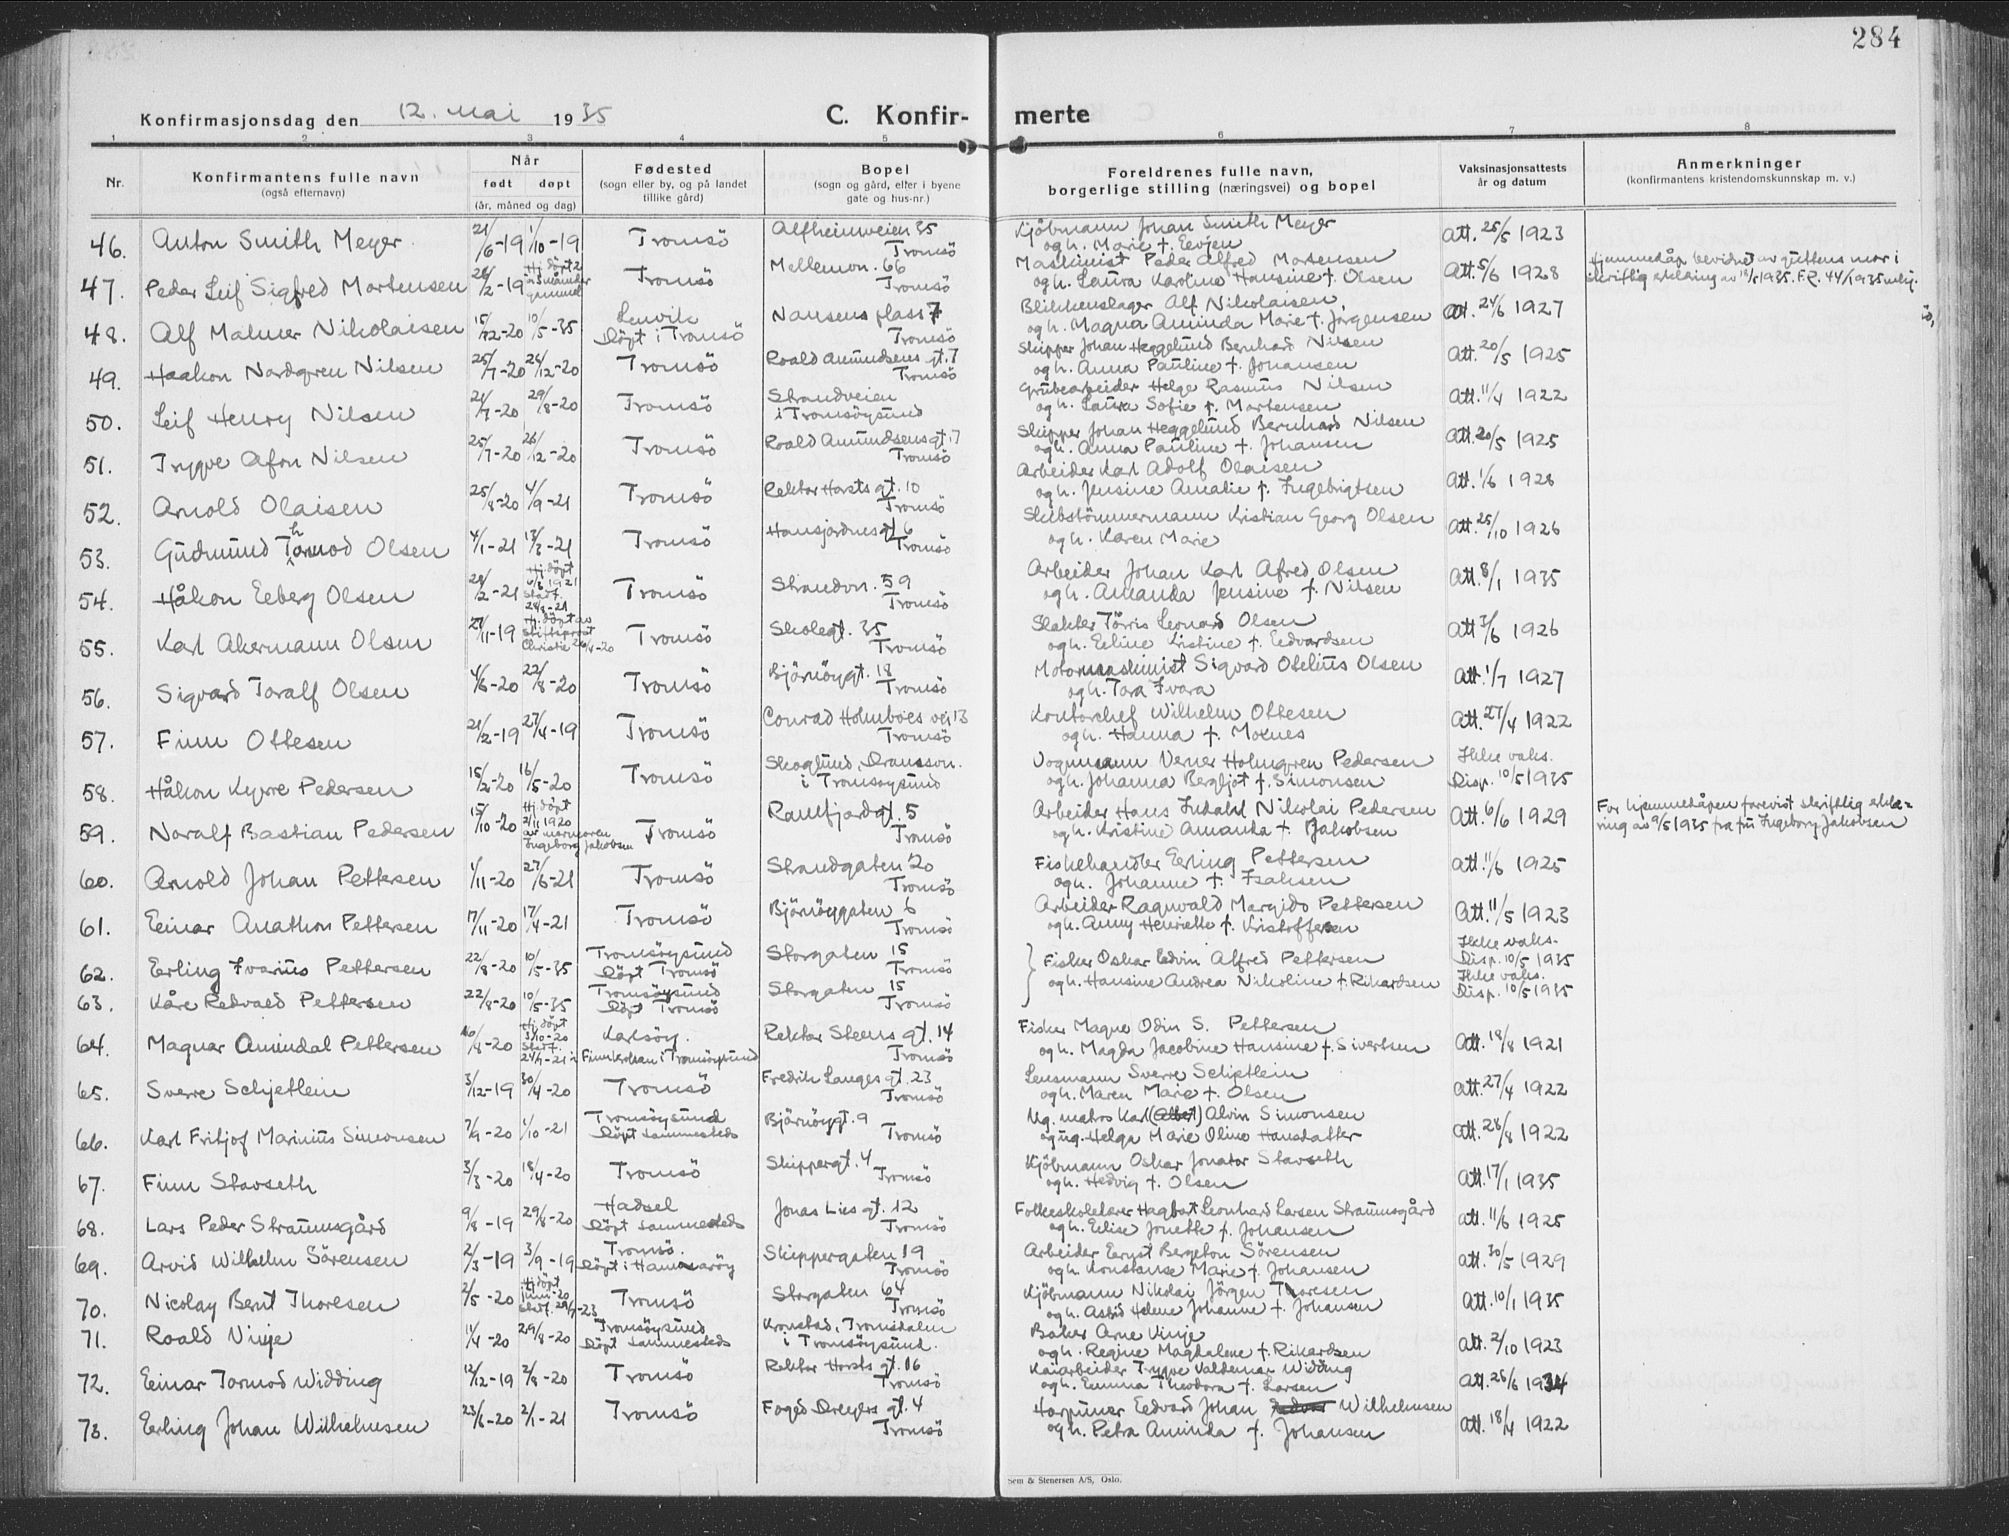 284
Konfirmasjonsdag den 12. Mai 1935
C. Konfir- merte
1 2 3 4 5 6 7 8
Nr.
Konfirmantens fulle navn
(også efternavn)
Når
født døpt
(år, måned og dag)
Fødested
(sogn eller by, og på landet
tillike gård)
Bopel
(sogn og gård, eller i byene
gate og hus-nr.)
Foreldrenes fulle navn,
borgerlige stilling (næringsvei) og bopel
Vaksinasjonsattests
år og datum
Anmerkninger
(konfirmantens kristendomskunnskap m. v.)
46. Anton Smith Meyer 21/6-19 1/10-19 Tromsö Alfheimveien 35 Tromsö Kjöbmann Johan Smith Meyer
og h. Marie f. Eevjen Att. 25/5 1923
47. Peder Leif Sigfred Mortensen 28/2-19 Hj. döpt 2 måneder gammel Tromsö Mellemvn. 66 Tromsö Maskinist Peder Alfred Mortensen
og h. Laura Karoline Hansine f. Olsen Att. 5/6 1928 Hjemmedåp bevidnet av guttens mor i
skriftlig erklæring av 12/5 1935. F.R. 44/1935
48. Alf Malmer Nikolaisen 15/12-20 10/5-35 Lenvik
döpt i Tromsö Nansens plass 7 Tromsö Blikkenslager Alf Nikolaisen,
og h. Magna Aminda Marie f. Jörgensen Att. 24/6 1927
49. Haakon Nordgren Nilsen 25/7-20 26/12-20 Tromsö Roald Amundsens gt. 7 Tromsö Skipper Johan Heggelund Bernhard Nilsen
og h. Anna Pauline f. Johansen Att. 20/5 1925
50. Leif Henry Nilsen 21/7-20 29/8-20 Tromsö Strandveien
i Tromsöysund Grubearbeider Helge Rasmus Nilsen
og h. Laura Sofie f. Mortensen Att. 11/4 1922
51. Trygve Afon Nilsen 25/7-20 26/12-20 Tromsö Roald Amundsens gt. 7 Tromsö Skipper Johan Heggelund Bernhard Nilsen
og h. Anna Pauline f. Johansen Att. 20/5 1925
52. Arnold Olaisen 25/8-20 4/9-21 Tromsö Rektor Horsts gt. 10 Tromsö Arbeider Karl Adolf Olaisen
og h. Jensine Amalie f. Ingebrigtsen Att. 1/6 1928
53. Gudmund Thormod Olsen 4/1-21 13/3-21 Tromsö Hansjordnes gt 6 Tromsö Skibstömmermann Kristian Georg Olsen
og h. Karen Marie Att. 25/10 1926
54. Håkon Eeberg Olsen 28/2-21 Hj. döpt 6/3 1921 Stadf. 28/3-21 Tromsö Strandvn. 59 Tromsö Arbeider Johan Karl Afred Olsen
og h. Amanda Jensine f. Nilsen Att. 8/1 1935
55. Karl Akermann Olsen 27/11-19 Hj. döpt av stiftsprost Christie 26/4-20 Tromsö Skolegt. 35 Tromsö Slakter Törris Leonard Olsen
og h. Eeline Kristine f. Eedvardsen Att 3/6 1926
56. Sigvard Toralf Olsen 4/6-20 22/8-20 Tromsö Björnöygt. 18 Tromsö Motormaskinist Sigvard Otelius Olsen
og h. Tora Ivara Att. 1/7 1927
57. Finn Ottesen 21/2-19 27/4-19 Tromsö Conrad Holmboes vei 13 Tromsö Kontorchef Wilhelm Ottesen
og h. Hanna f. Moenes Att. 27/4 1922
58. Håkon Kyrre Pedersen 15/2-20 16/5-20 Tromsö Skoglund, Dramsvn.
i Tromsöysund Vognmann Verner Holmgren Pedersen
og h. Johanna Bergljot f. Simonsen Ikke vaks.
Disp. 10/5 1935
59. Noralf Bastian Pedersen 15/10-20 Hj. döpt 2/11 1920 av mormoren Ingeborg Jakobsen Tromsö Ramfjordgt. 5 Tromsö Arbeider Hans Indahl Nikolai Pedersen
og h. Kristine Amanda f. Jakobsen Att. 6/6 1929 For hjemmedåpen forevist skriftlig erklæ-
ring av 9/5 1935 fra fru Ingeborg Jakobsen
60. Arnold Johan Pettersen 1/11-20 27/6-21 Tromsö Strandgaten 20 Tromsö Fiskehandler Eerling Pettersen
og h. Johanne f. Isaksen Att. 11/6 1925
61. Eeinar Anathon Pettersen 17/11-20 17/4-21 Tromsö Björnöygaten 6 Tromsö Arbeider Ragnvald Margido Pettersen
og h. Anny Henriette f. Kristoffersen Att. 11/5 1923
62. Eerling Ivarius Pettersen 22/8-20 10/5-35 Tromsöysund
döpt Tromsö Storgaten 15 Tromsö Fisker Oskar Edvin Alfred Pettersen
og h. Hansine Andrea Nikoline f. Rikardsen Ikke vaks.
Disp. 10/5 1935
63. Kåre Redvald Pettersen 22/8-20 10/5-35 Tromsöysund
döpt Tromsö Storgaten 15 Tromsö Ikke vaks.
Disp. 10/5 1935
64. Magnar Amindal Pettersen 10/8-20 Hj. döpt 3/10-20 Stadf. 24/4-21 i Karlsöy.
Finnkroken i Tromsöysund Rektor Steens gt. 14 Tromsö Fisker Magne Odin S. Pettersen
og h. Magda Jacobine Hansine f. Sivertsen Att. 18/8 1921
65. Sverre Schjetlein 3/12-19 30/4-20 Tromsö Fredrik Langes gt. 23 Tromsö Lensmann Sverre Schjetlein
og h. Maren Marie f. Olsen Att. 27/4 1922
66. Karl Fritjof Marinius Simonsen 7/9-20 4/10-21 Tromsöysund
döpt sammesteds Björnöygt. 9 Tromsö Ug. matros Karl (Albert) Alvin Simonsen
og ug. Helga Marie Oline Hansdatter Att. 28/8 1922
67. Finn Stavseth 3/3-20 18/4-20 Tromsö Skippergt. 4 Tromsö Kjöbmann Oskar Jonator Stavseth
og h. Hedvig f. Olsen Att. 17/1 1935
68. Lars Peder Straumsgård 9/8-19 29/8-20 Hadsel
döpt sammesteds Jonas Lies gt. 12 Tromsö Folkeskolelærer Hagbart Leonhard Larsen Straumsgård
og h. Eelise Jonette f. Johansen Att. 11/6 1925
69. Arvid Wilhelm Sörensen 2/3-19 3/9-19 Tromsö.
döpt i Hamarøy Skippergaten 19 Tromsö Arbeider Eernst Bergeton Sörensen
og h. Konstanse Marie f. Johansen Att. 30/5 1929
70. Nicolay Bernt Thoresen 2/5-20 Hj. döpt juni-20 Stadf. 29/7-23 Tromsö Storgaten 64 Tromsö Kjöbmann Nikolai Jörgen Thoresen
og h. Astrid Helene Johanne f. Johansen Att. 10/1 1935
71. Roald Vinje 11/4-20 29/8-20 Tromsöysund
döpt sammesteds Kronstad, Tromsdalen
i Tromsöysund. Baker Arne Vinje
og h. Regine Magdalene f. Rikardsen Att. 2/10 1923
72. Eeinar Tormod Widding 12/12-19 2/8-20 Tromsö Rektor Horsts gt. 16 Tromsö Kaiarbeider Trygve Valdemar Widding
og h. Emma Theodora f. Larsen Att. 25/6 1934
73. Eerling Johan Wilhelmsen 23/6-20 2/1-21 Tromsö Foged Dreyers gt. 4 Tromsö Harpuner Eedvard Johan Wilhelmsen
og h. Petra Aminda f. Johansen Att. 18/4 1922
Sem & Stenersen A/S, Oslo.